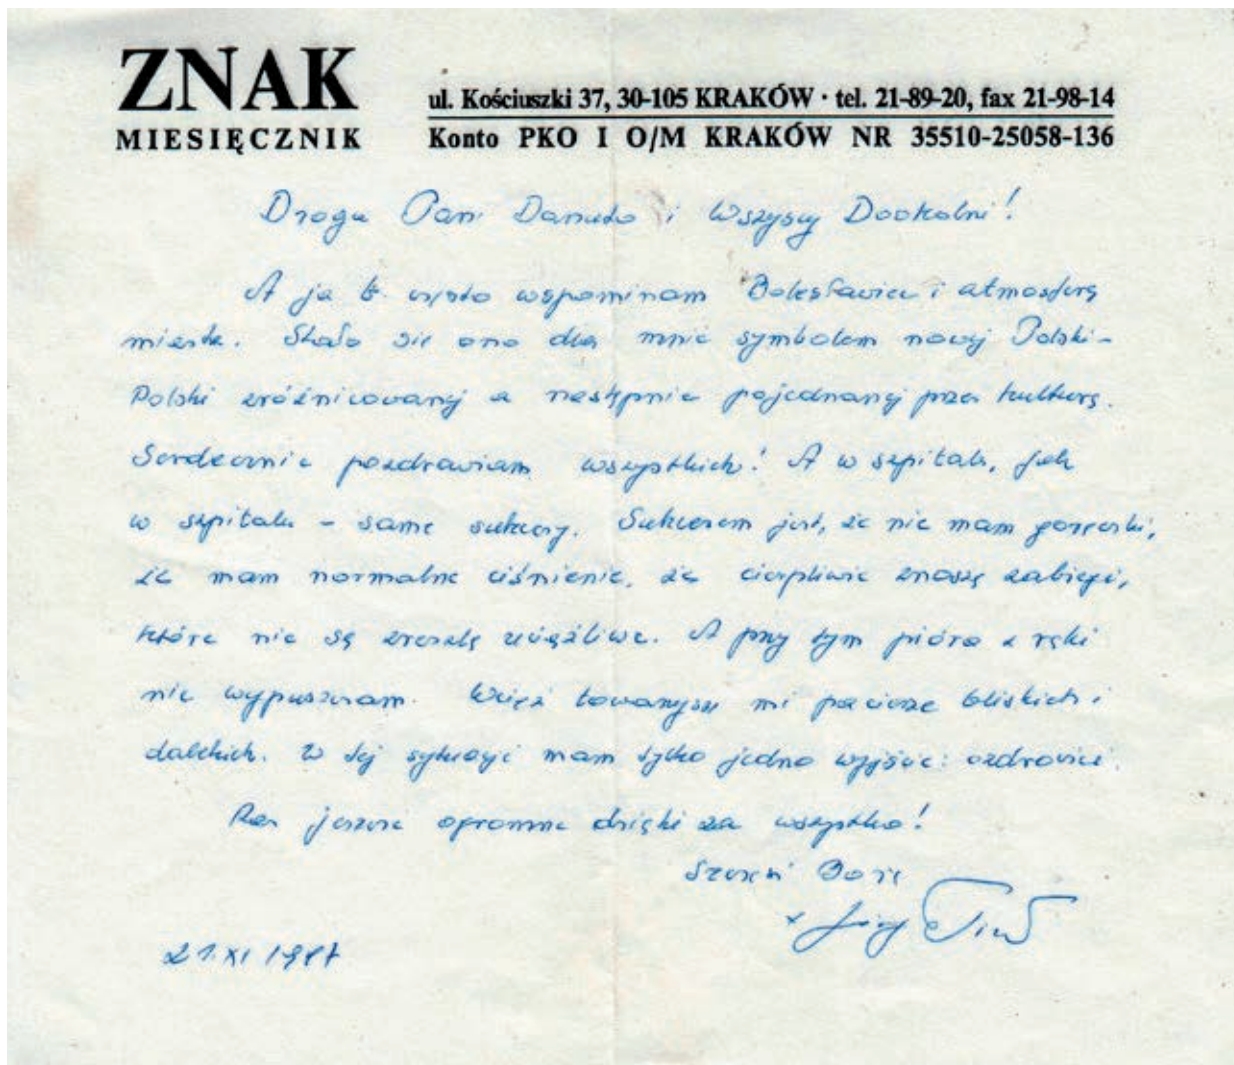 ZNAK
MIESIĘCZNIK
ul. Kościuszki 37, 30-105 KRAKÓW · tel. 21-89-20, fax 21-98-14
Konto PKO I O/M KRAKÓW NR 35510-25058-136
Droga Pani Danuto i Wszyscy Dookolni!
A ja b. często wspominam Bolesławiec i atmosferę
miasta. Stało się ono dla mnie symbolem nowej Polski –
Polski zróżnicowanej a następnie pojednanej przez kulturę.
Serdecznie pozdrawiam wszystkich! A w szpitalu, jak
w szpitalu – same sukcesy. Sukcesem jest, że nie mam gorączki,
że mam normalne ciśnienie, że cierpliwie znoszę zabiegi,
które nie są zresztą uciążliwe. A przy tym pióra z ręki
nie wypuszczam. Wciąż towarzyszą mi pacierze bliskich i
dalekich. W tej sytuacji mam tylko jedno wyjście: ozdrowieć.
Raz jeszcze ogromne dzięki za wszystko!
Szczęść Boże
x Józef
21.XI 1997